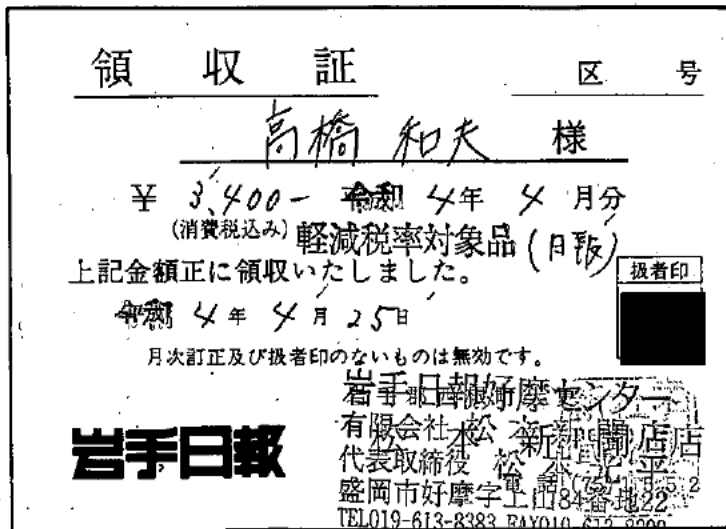 領収証
区 号
高橋 和夫 様
¥ 3,400- 令和 4年 4月分
(消費税込み) 軽減税率対象品 (日報)
上記金額正に領収いたしました。
扱者印
令和 4年 4月 25日
月次訂正及び扱者印のないものは無効です。
岩手日報好摩センター
岩手日報
有限会社 松本新聞店
代表取締役
盛岡市好摩字上山84番地22
TEL019-613-8383